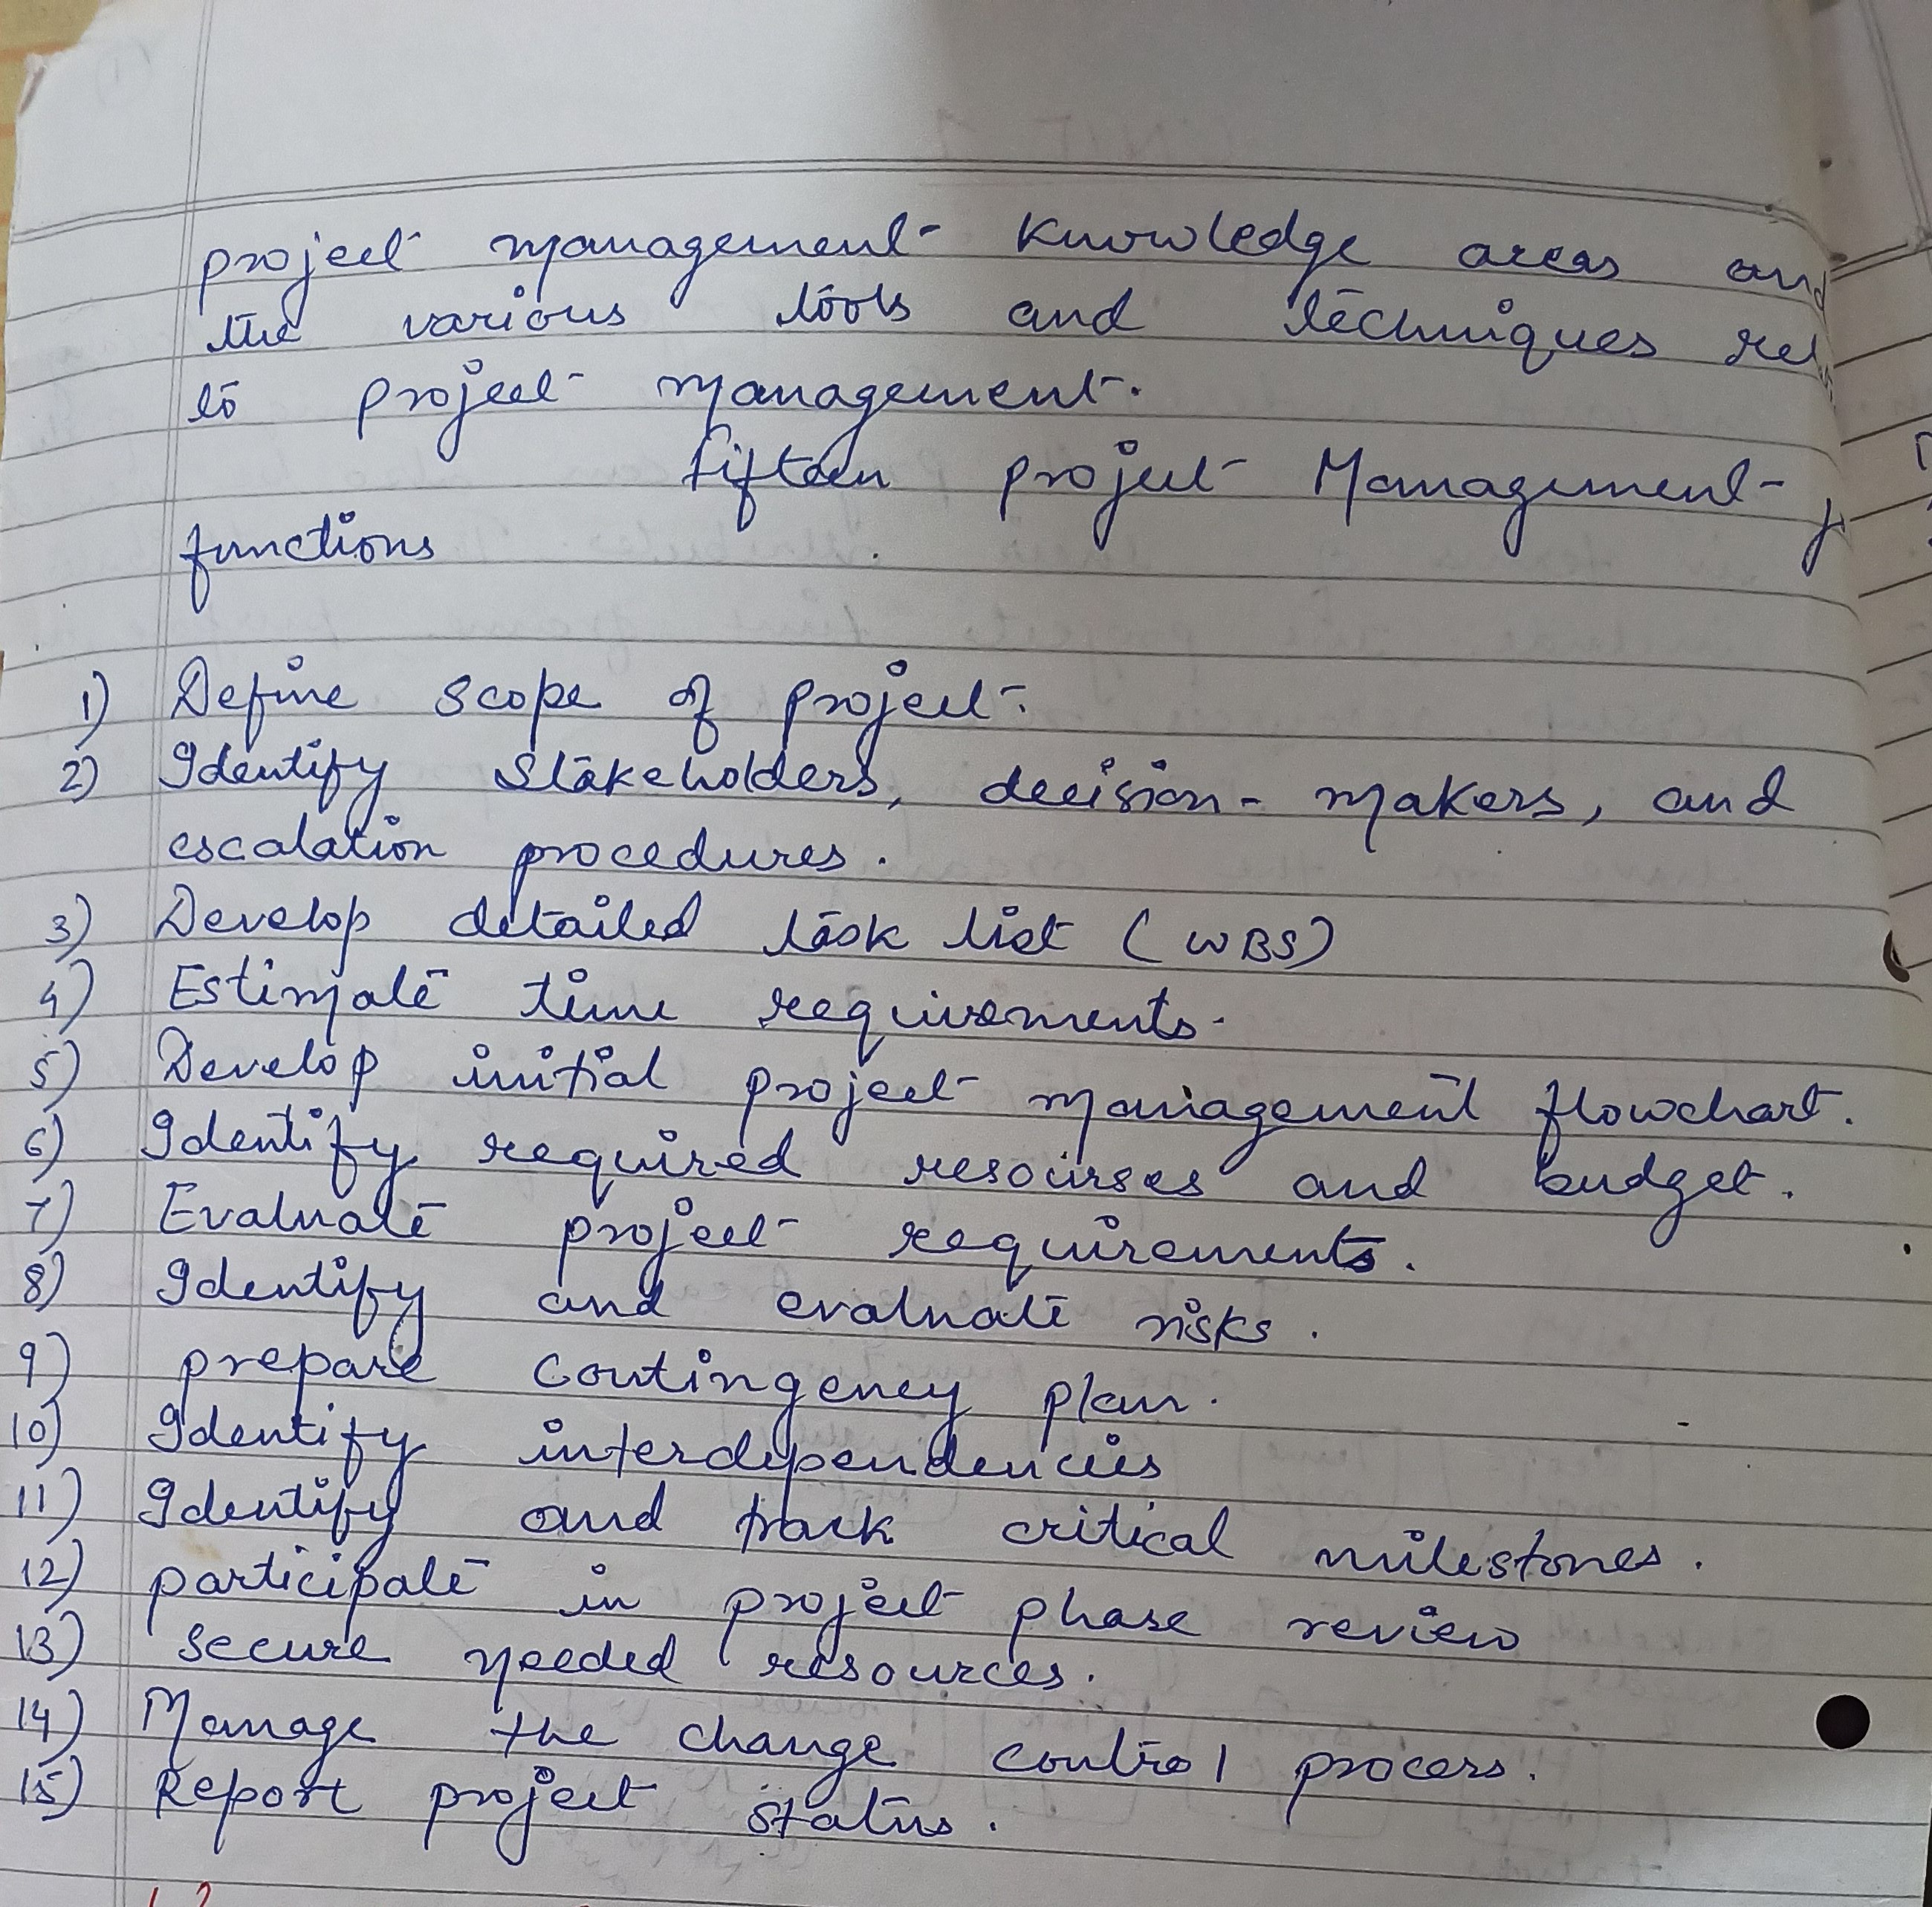 project management knowledge areas and
the various tools and techniques rel
to project management.
fifteen project Management
functions
1) Define scope of project.
2) Identify stakeholders, decision-makers, and
escalation procedures.
3) Develop detailed task list (WBS)
4) Estimate time requirements.
5) Develop initial project management flowchart.
6) Identify required resourses and budget.
7) Evaluate project requirements.
8) Identify and evaluate risks.
9) prepare contingency plan.
10) Identify interdependencies
11) Identify and track critical milestones.
12) participate in project phase review
13) secure needed resources.
14) Manage the change control process.
15) Report project status.